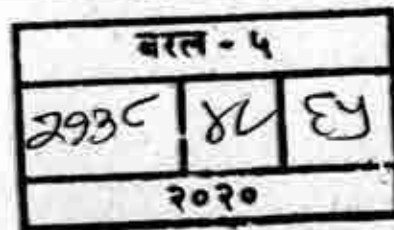 बरल - ५
२९३८ ६५
२०२०